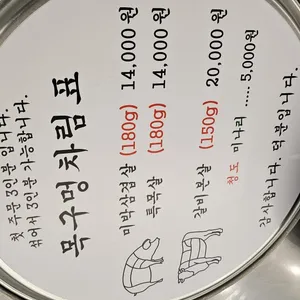 첫 주문 3인분 입니다.
섞어서 3인분 가능합니다.
목구멍차림표
미박삼겹살 (180g) 14,000원
특목살 (180g) 14,000원
갈비본살 (150g) 20,000원
청도 미나리 ..... 5,000원
감사합니다. 덕분입니다.